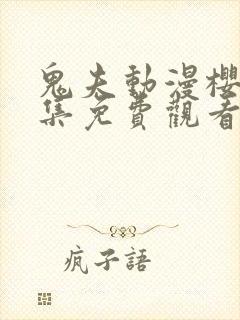 鬼夫動漫櫻
集免費觀看
瘋子語